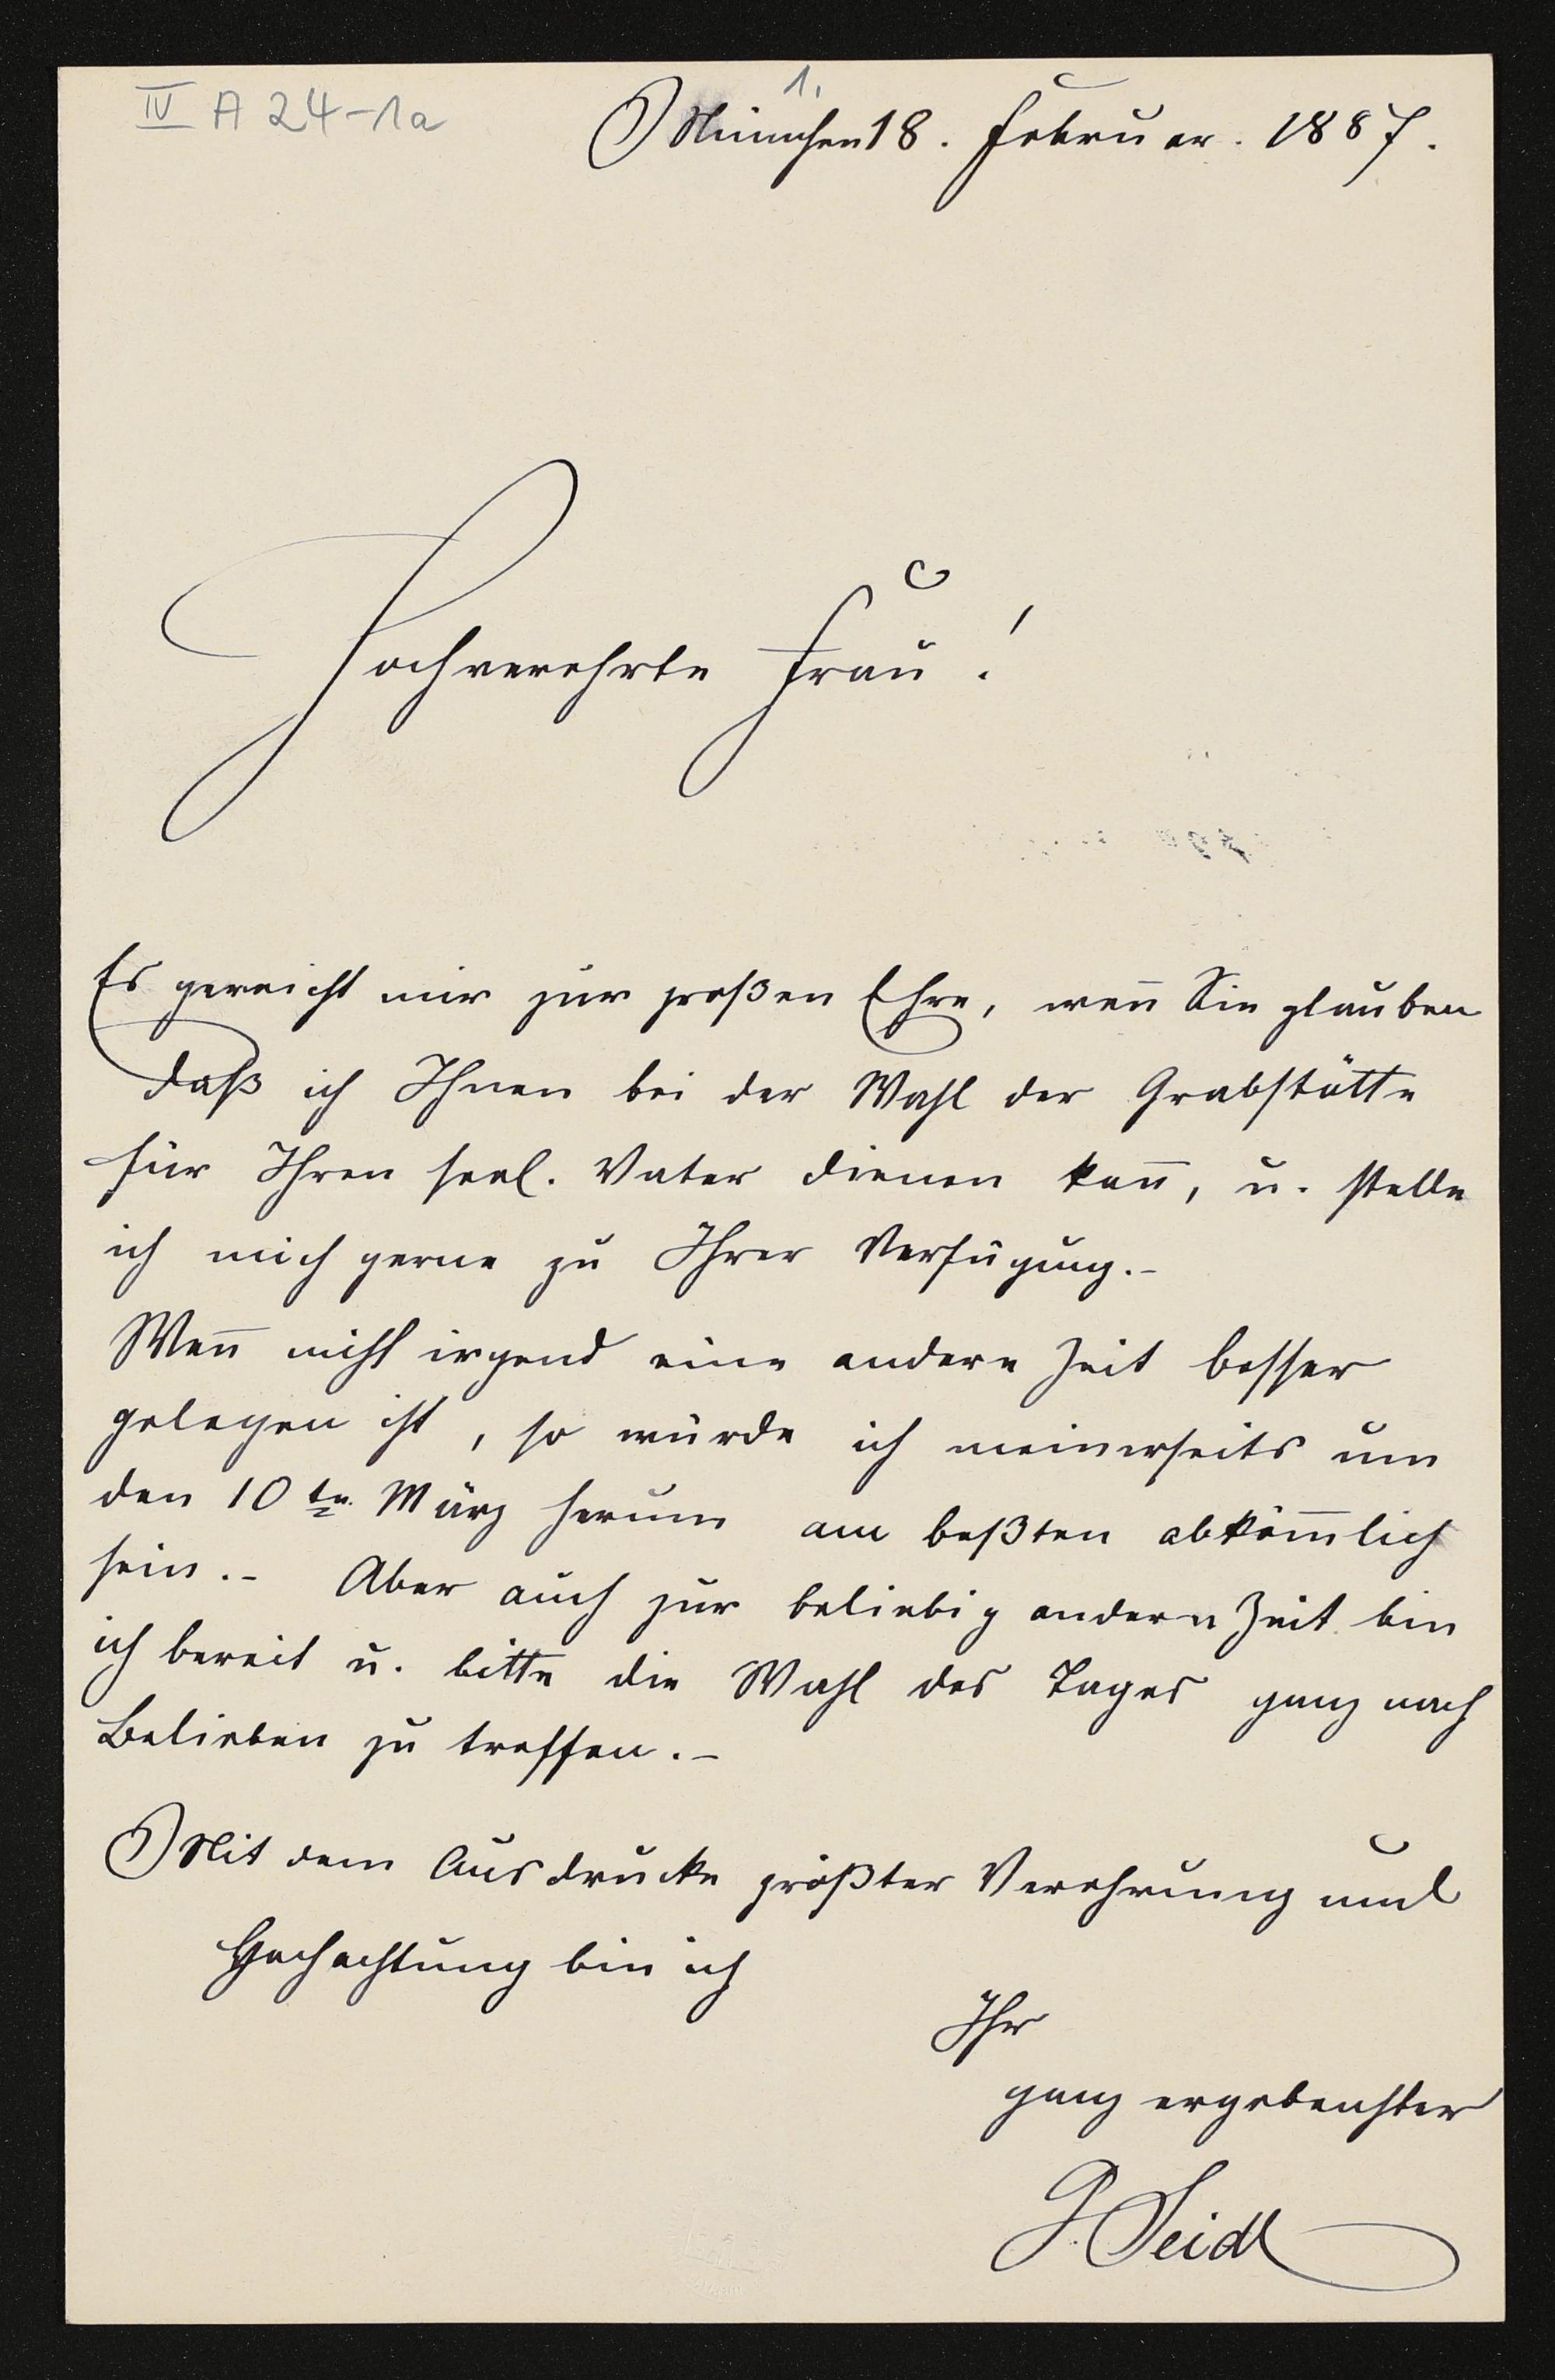 IV A 24-1a
1.
München 18. Februar. 1887.
Hochverehrte Frau!
Es gereicht mir zur großen Ehre, wen̄ Sie glauben
daß ich Ihnen bei der Wahl der Grabstätte
für Ihren seel. Vater dienen kan̄, u. stelle
ich mich gerne zu Ihrer Verfügung.-
Wen̄ nicht irgend eine andere Zeit besser
gelegen ist, so würde ich meinerseits um
den 10ten. März herum am beßten abköm̄lich
sein.- Aber auch zur beliebig andern Zeit bin
ich bereit u. bitte die Wahl des Tages ganz nach
Belieben zu treffen.-
Mit dem Ausdrucke größter Verehrung und
Hochachtung bin ich
Ihr
ganz ergebenster
G. Seidl